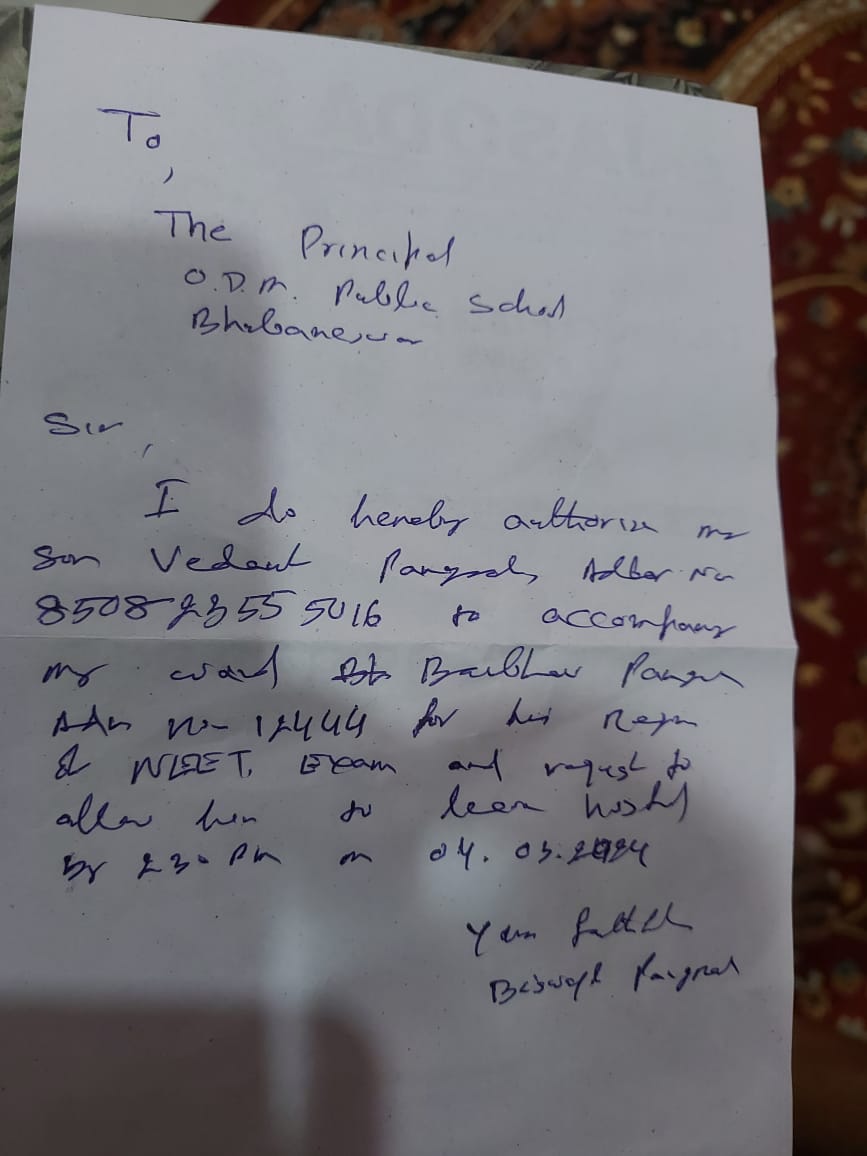 To,
The Principal
O.D.M. Public School
Bhubaneswar
Sir,
I do hereby authorize my
Son Vedant Adhar No
8508 2355 5016 to accompany
my ward Baibhav
Adm No- 12444 for his
NEET. Exam and request to
allow him to leave hostel
by 230 PM on 04. 03. 2024
Your faithful